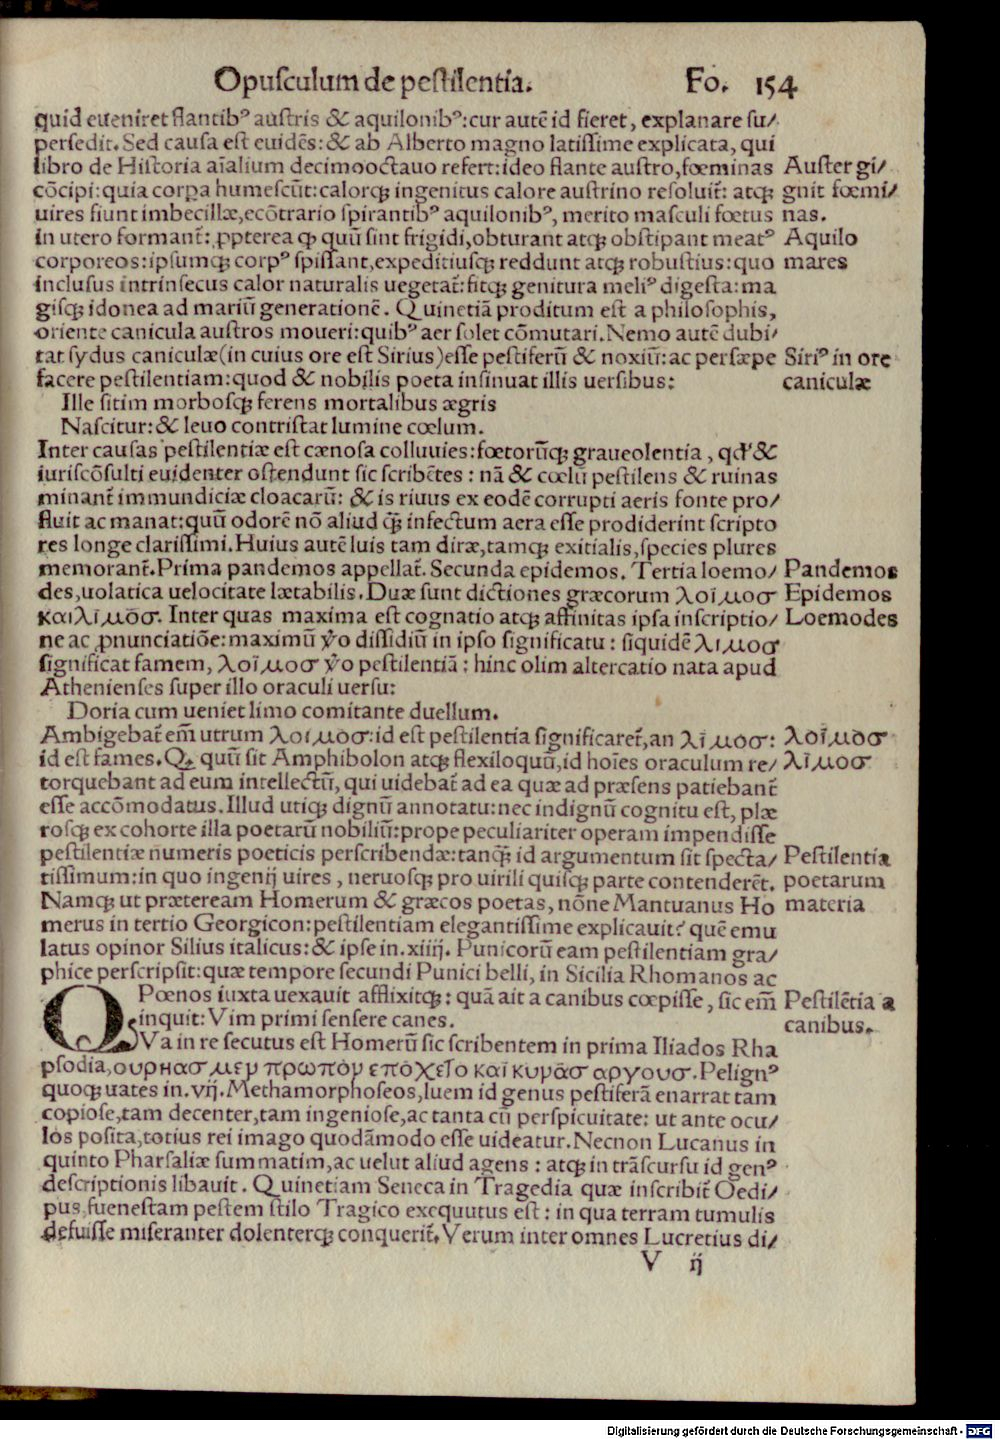 Opusculum de pestilentia. Fo. 154
quid eueniret flantibꝰ austris & aquilonibꝰ:cur autē id fieret, explanare su/
persedit. Sed causa est euidēs: & ab Alberto magno latissime explicata, qui
libro de Historia aīalium decimooctauo refert:ideo flante austro,fœminas
cōcipi:quia corpa humescūt:calorqꝫ ingenitus calore austrino resoluit̃: atqꝫ
uires fiunt imbecillæ,ecōtrario spirantibꝰ aquilonibꝰ, merito masculi fœtus
in utero formant̃: ꝓpterea ꝙ quū sint frigidi,obturant atqꝫ obstipant meatꝰ
corporeos:ipsumqꝫ corpꝰ spissant,expeditiusqꝫ reddunt atqꝫ robustius:quo
inclusus intrinsecus calor naturalis uegetat̃:fitqꝫ genitura meliꝰ digesta:ma
gisqꝫ idonea ad mariū generationē. Quinetiā proditum est a philosophis,
oriente canicula austros moueri:quibꝰ aer solet cōmutari.Nemo autē dubi/
tat sydus caniculæ(in cuius ore est Sirius)esse pestiferū & noxiū:ac persæpe
facere pestilentiam:quod & nobilis poeta insinuat illis uersibus:
Ille sitim morbosqꝫ ferens mortalibus ægris
Nascitur:& leuo contristat lumine cœlum.
Inter causas pestilentiæ est cænosa colluuies:fœtorūqꝫ graueolentia, qđ &
iuriscōsulti euidenter ostendunt sic scribētes : nā & cœlū pestilens & ruinas
minant̃ immundiciæ cloacarū: & is riuus ex eodē corrupti aeris fonte pro/
fluit ac manat:quū odorē nō aliud q̄ꝫ infectum aera esse prodiderint scripto
res longe clarissimi.Huius autē luis tam diræ,tamqꝫ exitialis,species plures
memorant̃.Prima pandemos appellat̃. Secunda epidemos. Tertia loemo/
des,uolatica uelocitate lætabilis. Duæ sunt dictiones græcorum λοιμοσ
καιλῑμōσ. Inter quas maxima est cognatio atqꝫ affinitas ipsa inscriptio/
ne ac ꝓnunciatiōe:maximū ỹo dissidiū in ipso significatu : siquidē λιμοσ
significat famem, λοϊμοσ ỹo pestilentiā : hinc olim altercatio nata apud
Athenienses super illo oraculi uersu:
Doria cum ueniet limo comitante duellum.
Ambigebat̃ em̄ utrum λοιμοσ:id est pestilentia significaret̃,an λῑμοσ:
id est fames.Qꝫ quū sit Amphibolon atqꝫ flexiloquū,id hoīes oraculum re/
torquebant ad eum intellectū, qui uidebat̃ ad ea quæ ad præsens patiebant̃
esse accōmodatus. Illud utiqꝫ dignū annotatu:nec indignū cognitu est, plæ
rosqꝫ ex cohorte illa poetarū nobiliū:prope peculiariter operam impendisse
pestilentiæ numeris poeticis perscribendæ:tanq̄ꝫ id argumentum sit specta/
tissimum:in quo ingenij uires , neruosqꝫ pro uirili quisqꝫ parte contenderēt.
Namqꝫ ut præteream Homerum & græcos poetas, nōne Mantuanus Ho
merus in tertio Georgicon:pestilentiam elegantissime explicauit? quē emu
latus opinor Silius italicus:& ipse in.xiiij. Punicorū eam pestilentiam gra/
phice perscripsit:quæ tempore secundi Punici belli, in Sicilia Rhomanos ac
Pœnos iuxta uexauit afflixitqꝫ: quā ait a canibus cœpisse, sic em̄
inquit: Vim primi sensere canes.
QVa in re secutus est Homerū sic scribentem in prima Iliados Rha
psodia,ουρηασ μεν πρωπὸν επὸχεῖο καῖ κυνᾶσ αργουσ.Pelignꝰ
quoqꝫ uates in.vij.Methamorphoseos,luem id genus pestiferā enarrat tam
copiose,tam decenter,tam ingeniose,ac tanta cū perspicuitate: ut ante ocu/
los posita,totius rei imago quodāmodo esse uideatur.Necnon Lucanus in
quinto Pharsaliæ summatim,ac uelut aliud agens : atqꝫ in trāscursu id genꝰ
descriptionis libauit. Quinetiam Seneca in Tragedia quæ inscribit̃ Oedi/
pus,fuenestam pestem stilo Tragico exequutus est: in qua terram tumulis
defuisse miseranter dolenterqꝫ conquerit̃.Verum inter omnes Lucretius di/
V ij
Auster gi/
gnit fœmi/
nas.
Aquilo
mares
Siriꝰ in ore
caniculæ
Pandemos
Epidemos
Loemodes
λοϊμὸσ
λῑμοσ
Pestilentia
poetarum
materia
Pestilētia a
canibus.
Digitalisierung gefördert durch die Deutsche Forschungsgemeinschaft - DFG